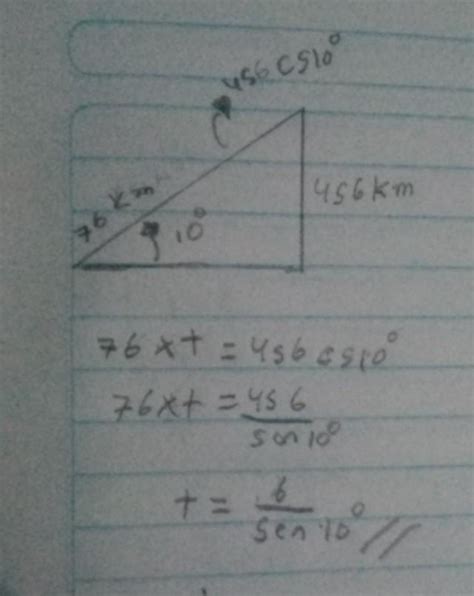 456 cs10°
76 km
10°
456 km
76 x t = 456 cs10°
76 x t = 456
sen 10°
t = 6
sen 10° //